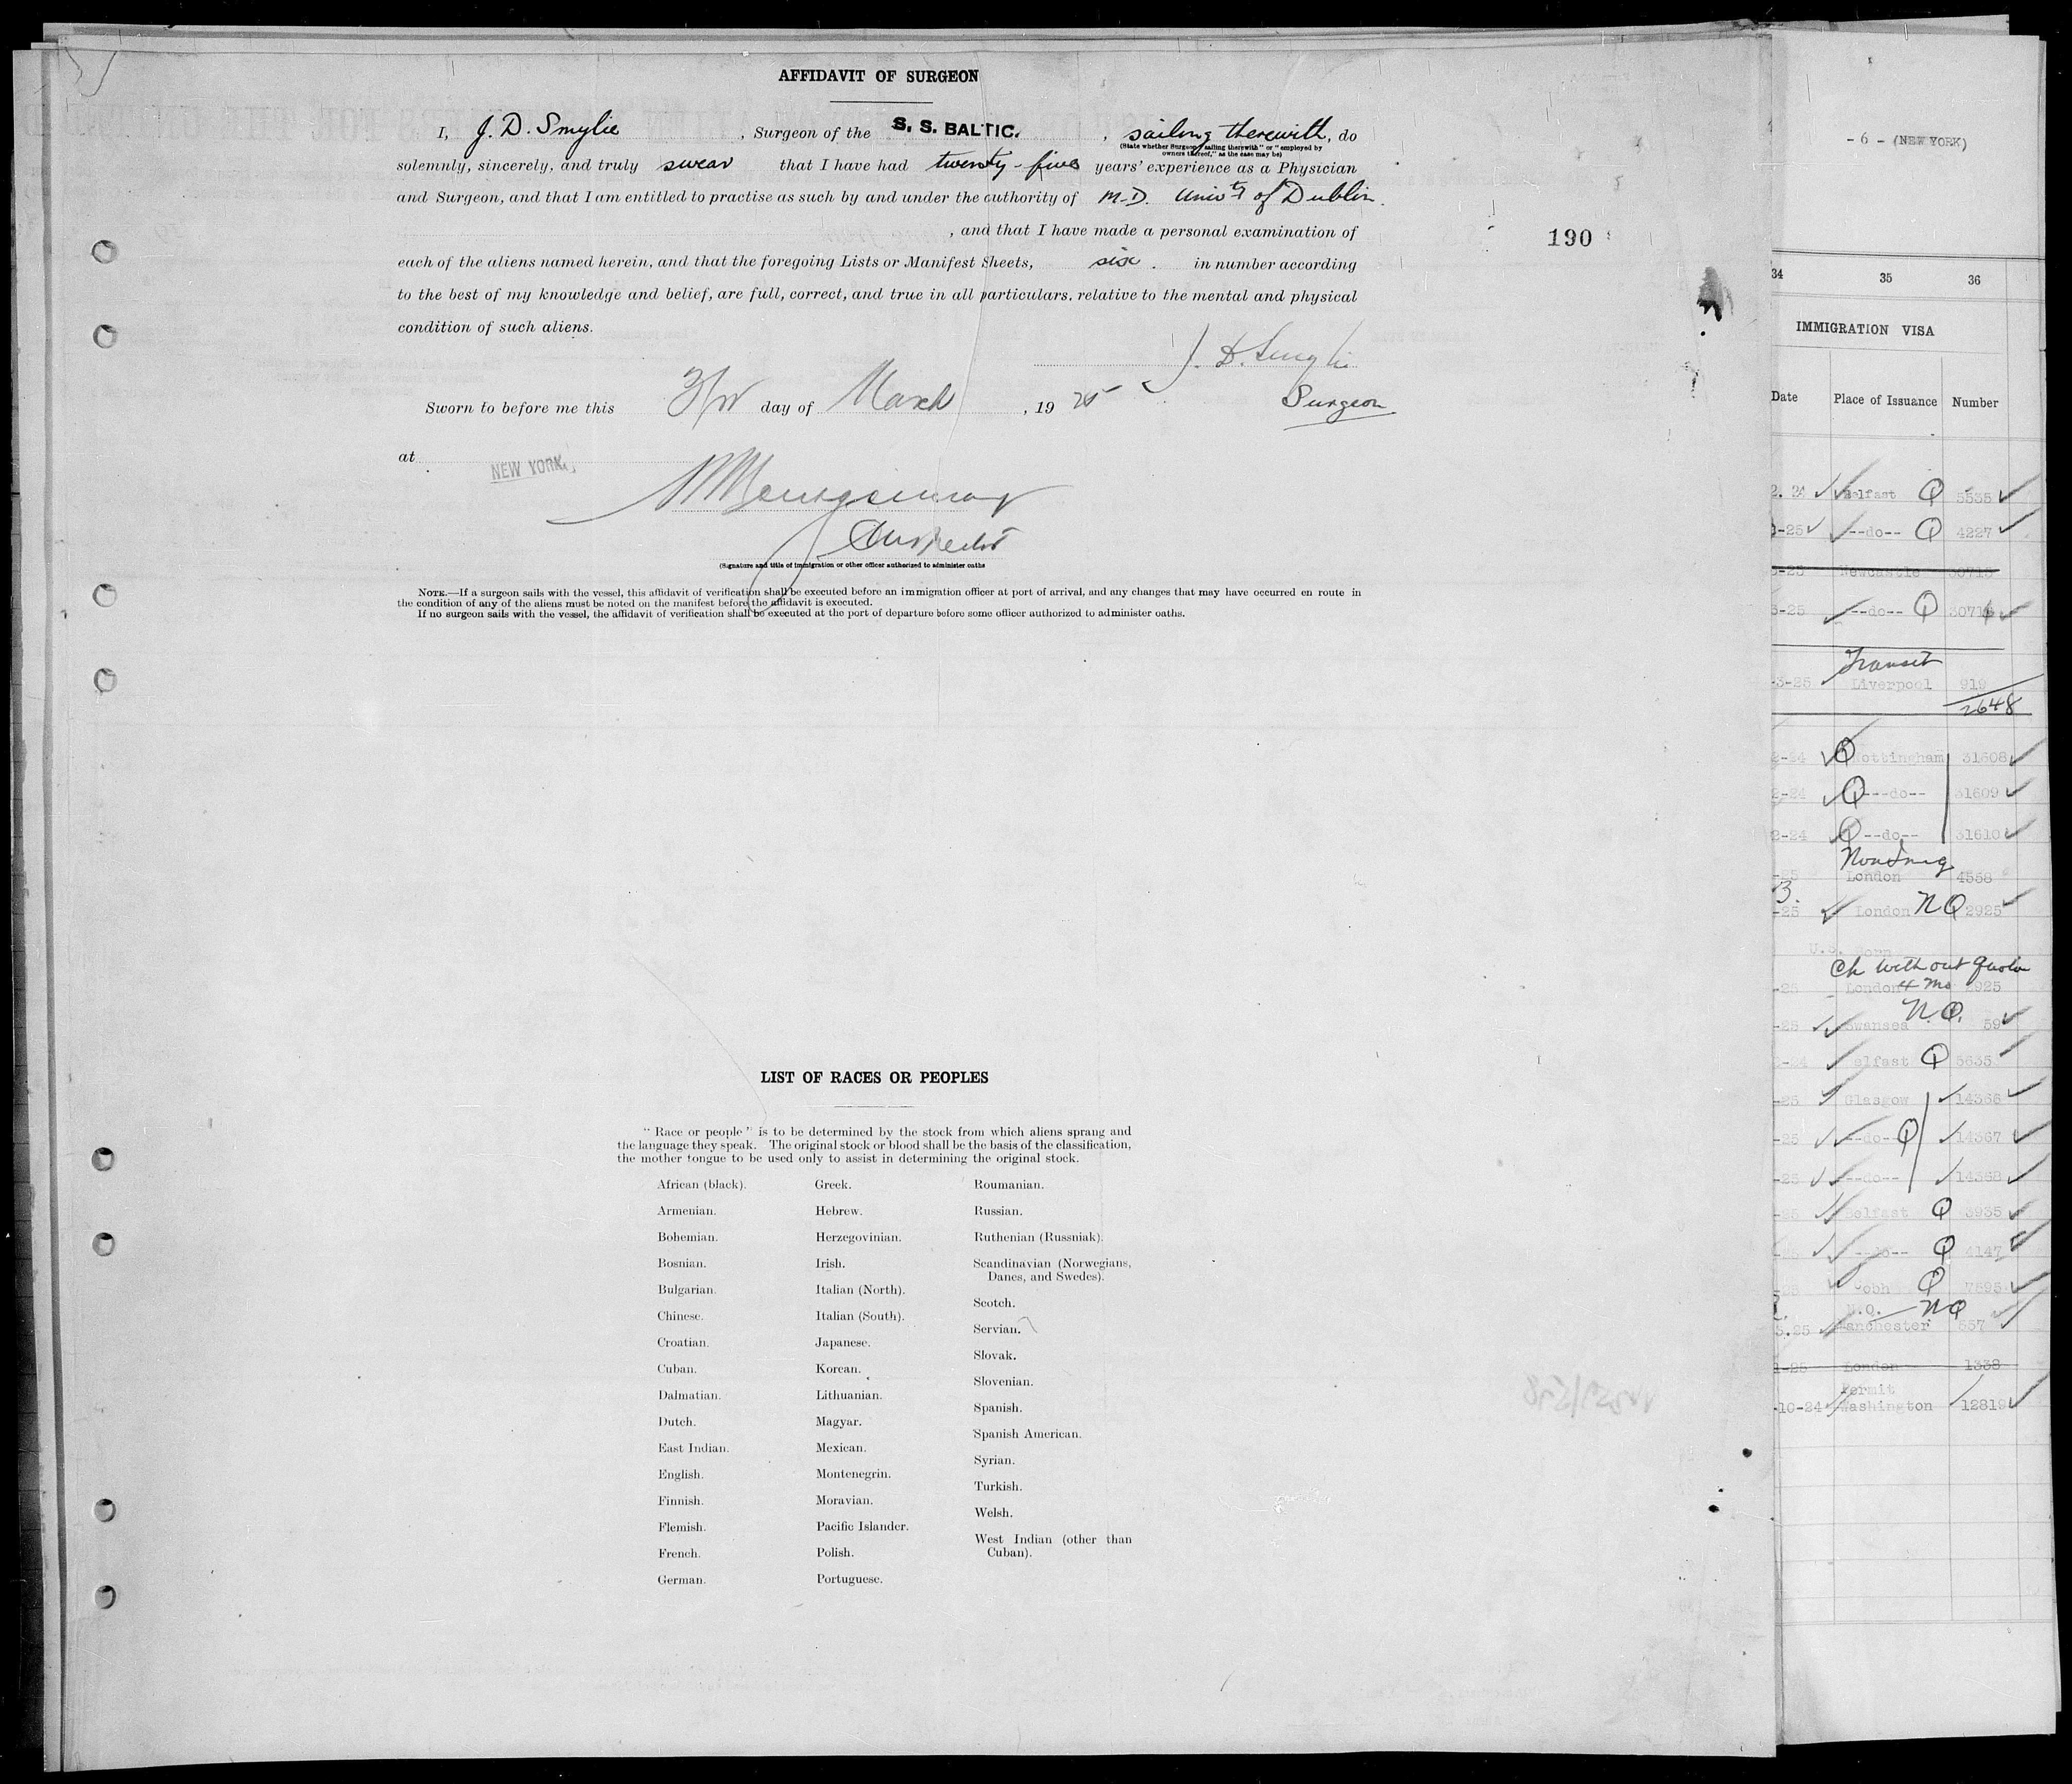 AFFIDAVIT OF SURGEON
I, J. D. Smylie, Surgeon of the S. S. BALTIC., sailing therewith, do
(State whether Surgeon "sailing therewith" or "employed by
owners thereof," as the case may be)
solemnly, sincerely, and truly swear that I have had twenty-five years' experience as a Physician
and Surgeon, and that I am entitled to practise as such by and under the authority of M.D. Univty of Dublin.
, and that I have made a personal examination of
each of the aliens named herein, and that the foregoing Lists or Manifest Sheets, six. in number according
to the best of my knowledge and belief, are full, correct, and true in all particulars, relative to the mental and physical
condition of such aliens.
J. D. Smylie
Surgeon
Sworn to before me this day of March, 1925
at NEW YORK.
(Signature and title of immigration or other officer authorized to administer oaths
NOTE.—If a surgeon sails with the vessel, this affidavit of verification shall be executed before an immigration officer at port of arrival, and any changes that may have occurred en route in
the condition of any of the aliens must be noted on the manifest before the affidavit is executed.
If no surgeon sails with the vessel, the affidavit of verification shall be executed at the port of departure before some officer authorized to administer oaths.
190
LIST OF RACES OR PEOPLES
"Race or people" is to be determined by the stock from which aliens sprang and
the language they speak. The original stock or blood shall be the basis of the classification,
the mother tongue to be used only to assist in determining the original stock.
African (black).
Armenian.
Bohemian.
Bosnian.
Bulgarian.
Chinese.
Croatian.
Cuban.
Dalmatian.
Dutch.
East Indian.
English.
Finnish.
Flemish.
French.
German.
Greek.
Hebrew.
Herzegovinian.
Irish.
Italian (North).
Italian (South).
Japanese.
Korean.
Lithuanian.
Magyar.
Mexican.
Montenegrin.
Moravian.
Pacific Islander.
Polish.
Portuguese.
Roumanian.
Russian.
Ruthenian (Russniak).
Scandinavian (Norwegians,
Danes, and Swedes).
Scotch.
Servian.
Slovak.
Slovenian.
Spanish.
Spanish American.
Syrian.
Turkish.
Welsh.
West Indian (other than
Cuban).
- 6 - (NEW YORK)
34 35 36
IMMIGRATION VISA
Date Place of Issuance Number
Belfast Q 5535
-25 --do-- Q 4227
Newcastle
-25 --do-- Q
Transit
-3-25 Liverpool 919
2648
Q Nottingham 31608
-24 Q --do-- 31609
-24 Q --do-- 31610
London 4558
-25 London NQ 2925
U.S. Born
Ch without quota
London 4 Mo 2925
N.Q.
-25 Swansea 59
-24 Belfast Q 5635
-25 Glasgow 14366
-25 --do-- Q 14367
-25 --do-- 14368
-25 Belfast Q 3935
--do-- Q 4147
Cobh Q 7595
N.Q. NQ
.25 Manchester 557
-25 London 1338
Permit
-10-24 Washington 12819